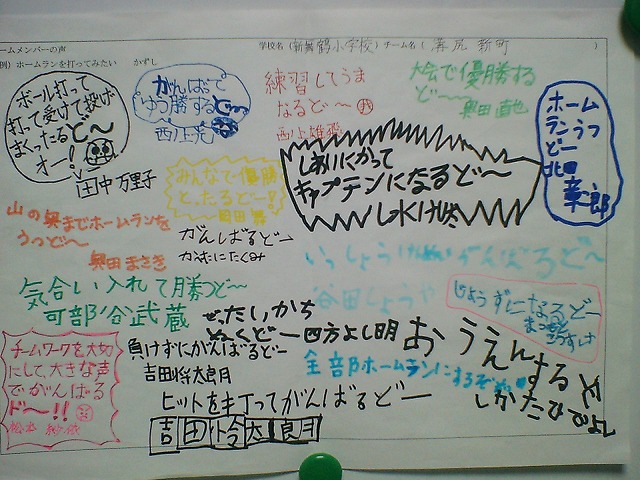 ームメンバーの声
学校名（新舞鶴小学校）チーム名（ 溝尻 新町 ）
例）ホームランを打ってみたい かずし
ボール打って
打って受けて投げ
まくったるど〜
オー!
田中 万里子
がんばって
ゆう勝するど〜
練習してうま
なるど〜
大会で優勝する
ど〜
奥田 直也
ホーム
ランうつ
どー
北田
章一郎
みんなで優勝
とったるど〜!
しあいにかって
キャプテンになるど〜
山の奥までホームランを
うつど〜
奥田 まさき
がんばるどー
かただにたくみ
いっしょうけんめいがんばろど〜
谷田しょうや
気合い入れて勝つど〜
可部谷武蔵
ぜったい、かち
ぬくどー 四方よし明
じょうずになるどー
おうえんするよ
しかたひでよし
チームワークを大切
にして、大きな声
でがんばる
ド〜!!
負けずにがんばるどー
吉田将太良月
全部ホームランにするぞ
ヒットを打ってがんばるどー